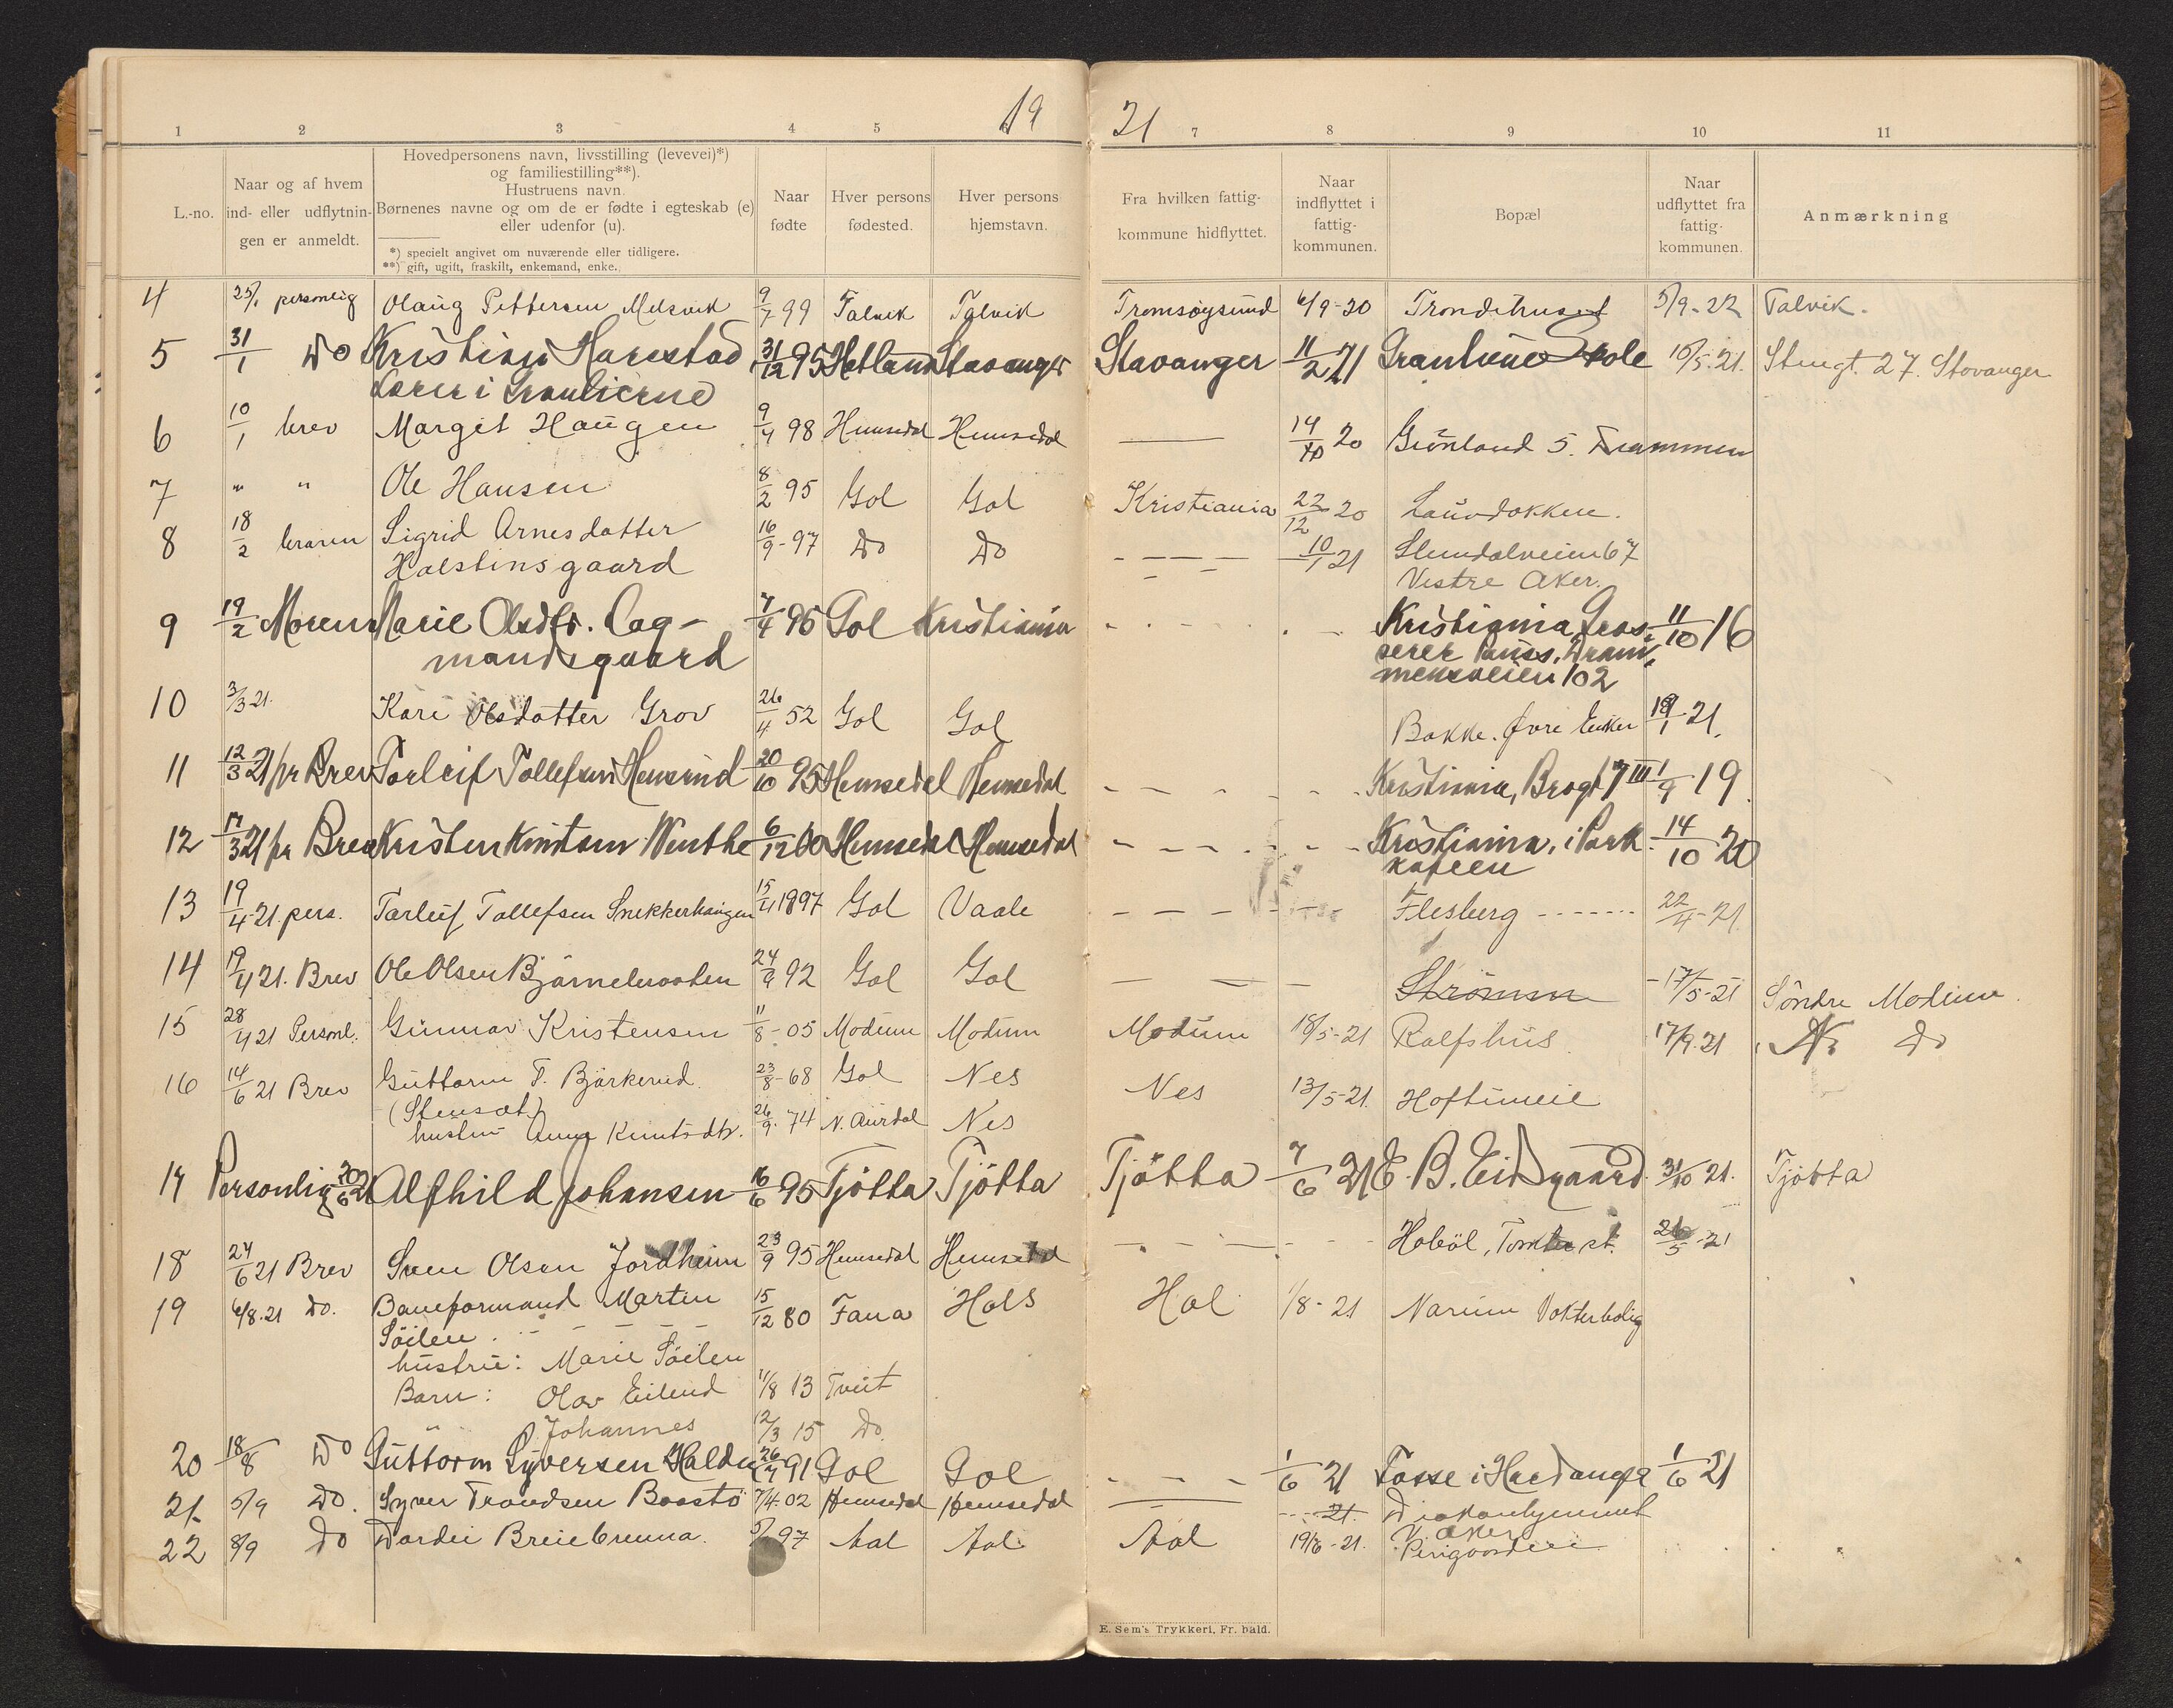 19 21
1 2 3 4 5 7 8 9 10 11
L.-no.
Naar og af hvem
ind- eller udflytnin-
gen er anmeldt.
Hovedpersonens navn, livsstilling (levevei)*)
og familiestilling**).
Hustruens navn.
Børnenes navne og om de er fødte i egteskab (e)
eller udenfor (u).
*) specielt angivet om nuværende eller tidligere.
**) gift, ugift, fraskilt, enkemand, enke.
Naar
fødte
Hver persons
fødested.
Hver persons
hjemstavn.
Fra hvilken fattig-
kommune hidflyttet.
Naar
indflyttet i
fattig-
kommunen.
Bopæl
Naar
udflyttet fra
fattig-
kommunen.
Anmærkning
4 25/1 personlig Olaug Pettersen Melsvik 9/7 99 Talvik Talvik Tromsøysund 6/9-20 Trondehuset 5/9-22 Talvik.
5 31/1 Do Kristian Harestad 31/12 95 Hetland Stavanger Stavanger 11/2 21 Granliene Skole 10/5-21. Stengt. 27. Stavanger
Lærer i Granlierne
6 10/1 brev Margit Haugen 9/4 98 Hemsedal Hemsedal 14/10 20 Grönland 5. Drammen
7 " " Ole Hansen 8/2 95 Gol Gol Kristiania 22/12 20 Lauvdokken.
8 18/2 Sigrid Arnesdatter 16/9-97 Do Do 10/1 21 Slemdalveien 67
Halstinsgaard Vestre Aker.
9 19/2 Moren Marie Olsdtr. Lag- 7/4 96 Gol Kristiania Kristiania, Gros- 11/10 16
mandsgaard serer Dram-
mensveien 102
10 3/3 21. Kari Olsdatter Grov 26/4 52 Gol Gol Bakke. Øvre Eiker 18/1-21.
11 12/3 21 pr Brev Torleif Tollefsen Hemsrud 20/10 95 Hemsedal Hemsedal Kristiania, Brogt 7 III 1/9 19
12 17/3 21 pr Brev Kristen Knutsen Wenthe 6/12 60 Hemsedal Hemsedal Kristiania, i Park- 14/10 20
kafeen
13 19/4-21. pers. Tarleif Tollefsen Snekkerhaugen 15/4 1897 Gol Vaale Flesberg 22/4-21
14 19/4 21. Brev Ole Olsen Björnebraaten 24/9 92 Gol Gol Strömmen 17/5-21 Söndre Modum.
15 28/4 21 Personl. Gunnar Kristensen 11/8-05 Modum Modum Modum 18/5-21 Ralfshus 17/9.21 N. Do
16 14/6 21 Brev Guttorm T. Björkerud 23/8-68 Gol Nes Nes 13/5-21. Hoftuneie
(Stensæt)
hustru Anne Knutsdtr. 26/9-74 N. Aurdal Nes
17 Personlig 20/6 21 Alfhild Johansen 16/6 95 Tjötta Tjötta Tjötta 7/6 21 E. B. Eidsgaard. 31/10 21. Tjötta
18 24/6 21 Brev Sven Olsen Jordheim 23/9 95 Hemsedal Hemsedal Haböl, Tomter st. 26/5-21
19 6/8.21 Do. Baneformand Marten 15/12 80 Fana Hols Hol 1/8-21 Narum Vokterbolig
Söilen.
hustru: Marie Söilen
Barn: Olav Eilend 11/8 13 Tveit
" Johannes 12/3 15 Do
20 18/8 Do Guttorm Syversen Halden 26/7 91 Gol Gol 1/6 21 Tosse i Hardanger 1/6 21
21 5/9 Do. Syver Trondsen Baastö 7/4-02 Hemsedal Hemsedal 21. Diakonhjemmet
V. Aker
22 8/9 Do Dordei Breiebrenna. 97 Aal Aal Aal 19/6-21.
E. Sem's Trykkeri, Fr. hald.